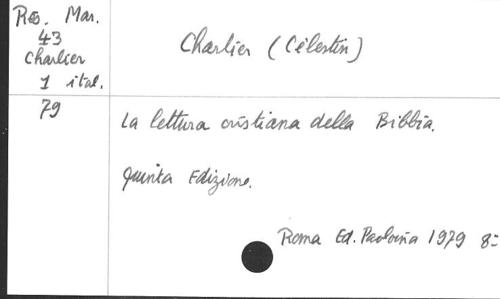 Res. Mar.
43
Charlier
1 ital.
79
Charlier (Célestin)
La lettura cristiana della Bibbia.
Quinta Edizione.
Roma Ed. Paoline 1979 8=